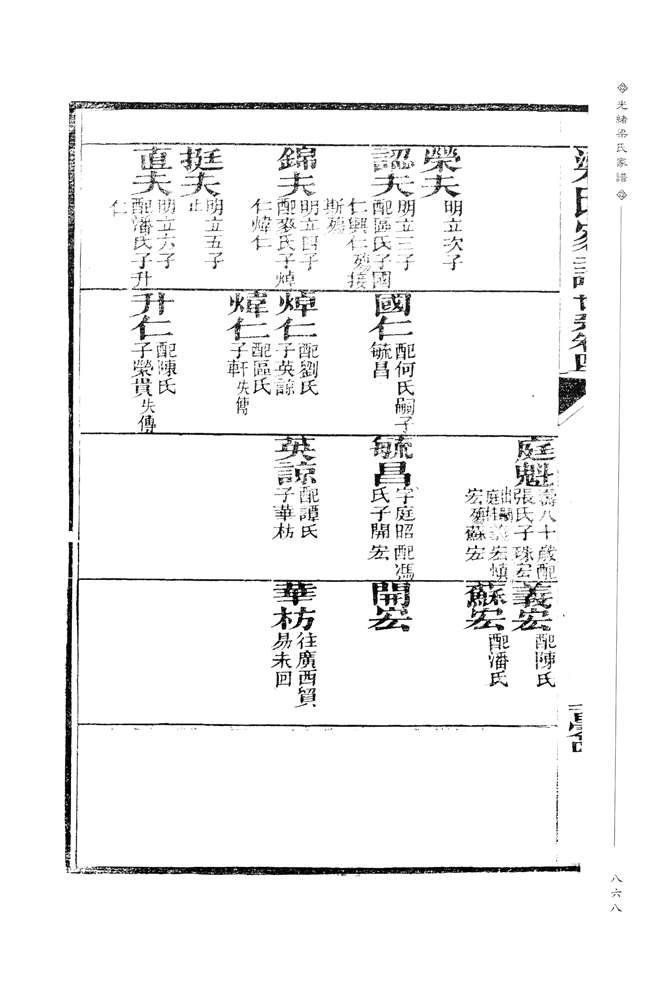 光緒梁氏家譜
梁氏家譜
榮夫
明立次子
認夫
明立三子
配區氏子國
仁興仁殤接
斯殤
錦夫
明立四子
配麥氏子焯
仁煒仁
挺夫
明立五子
止
直夫
明立六子
配潘氏子升
仁
國仁
配何氏嗣子
毓昌
焯仁
配劉氏
子英諒
煒仁
配區氏
子軒失傳
升仁
配陳氏
子榮貴失傳
庭魁
壽八十歲配
張氏子珠宏
宏殤蘇宏
毓昌
字庭昭配馮
氏子開宏
英諒
配譚氏
子華枋
義宏
配陳氏
蘇宏
配潘氏
開宏
華枋
往廣西貿
易未回
八六八